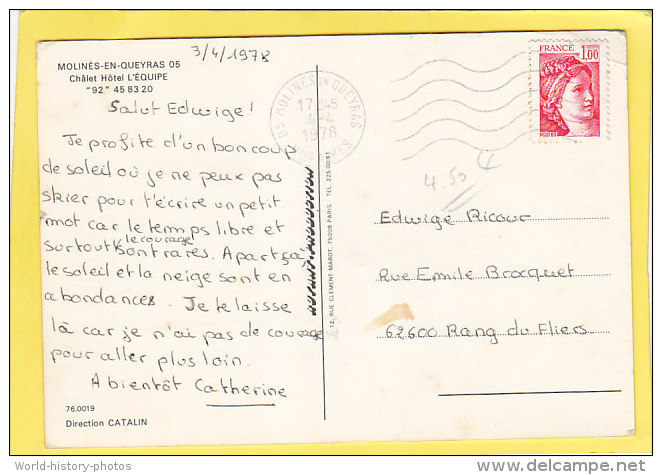 MOLINES-EN-QUEYRAS 05
Châlet Hôtel L'ÉQUIPE
"92" 45 83 20
3/4/1978
Salut Edwige!
Je profite d'un bon coup
de soleil où je ne peux pas
skier pour t'écrire un petit
mot car le temps libre et
surtout le courage sont rares. A part ça,
le soleil et la neige sont en
abondances. Je te laisse
là car je n'ai pas de courage
pour aller plus loin.
A bientôt Catherine
76.0019
Direction CATALIN
05 MOLINES EN QUEYRAS
17 45
4-4
1978
12, RUE CLEMENT MAROT, 75008 PARIS TEL. 225 00 61
FRANCE 1,00
POSTES
4.50
Edwige Ricour
Rue Emile Brocquet
62600 Rang du Fliers
World-history-photos
www.delcampe.net